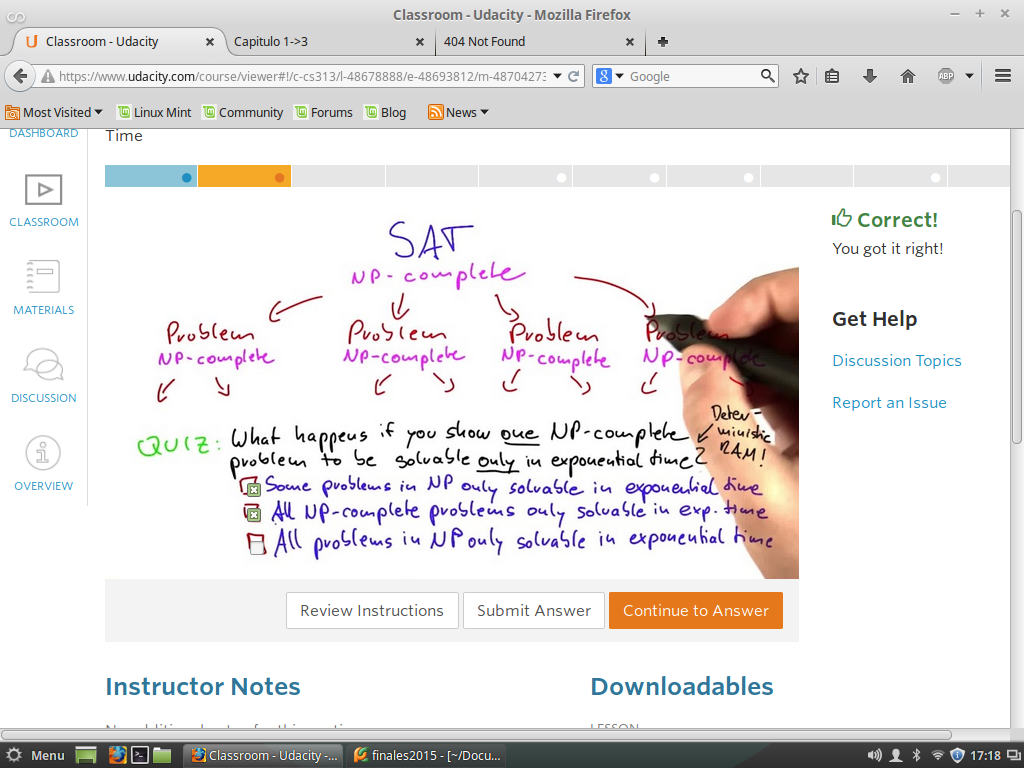 Classroom - Udacity - Mozilla Firefox
Classroom - Udacity
Capitulo 1->3
404 Not Found
https://www.udacity.com/course/viewer#!/c-cs313/l-48678888/e-48693812/m-48704273
Google
ABP
Most Visited
Linux Mint
Community
Forums
Blog
News
DASHBOARD
CLASSROOM
MATERIALS
DISCUSSION
OVERVIEW
Time
SAT
NP-complete
Problem Problem Problem Problem
NP-complete NP-complete NP-complete NP-complete
QUIZ: What happens if you show one NP-complete
problem to be solvable only in exponential time?
Deter-
ministic
RAM!
Some problems in NP only solvable in exponential time
All NP-complete problems only solvable in exp. time
All problems in NP only solvable in exponential time
Correct!
You got it right!
Get Help
Discussion Topics
Report an Issue
Review Instructions
Submit Answer
Continue to Answer
Instructor Notes
Downloadables
LESSON
Menu
Classroom - Udacity -...
finales2015 - [~/Docu...
17:18